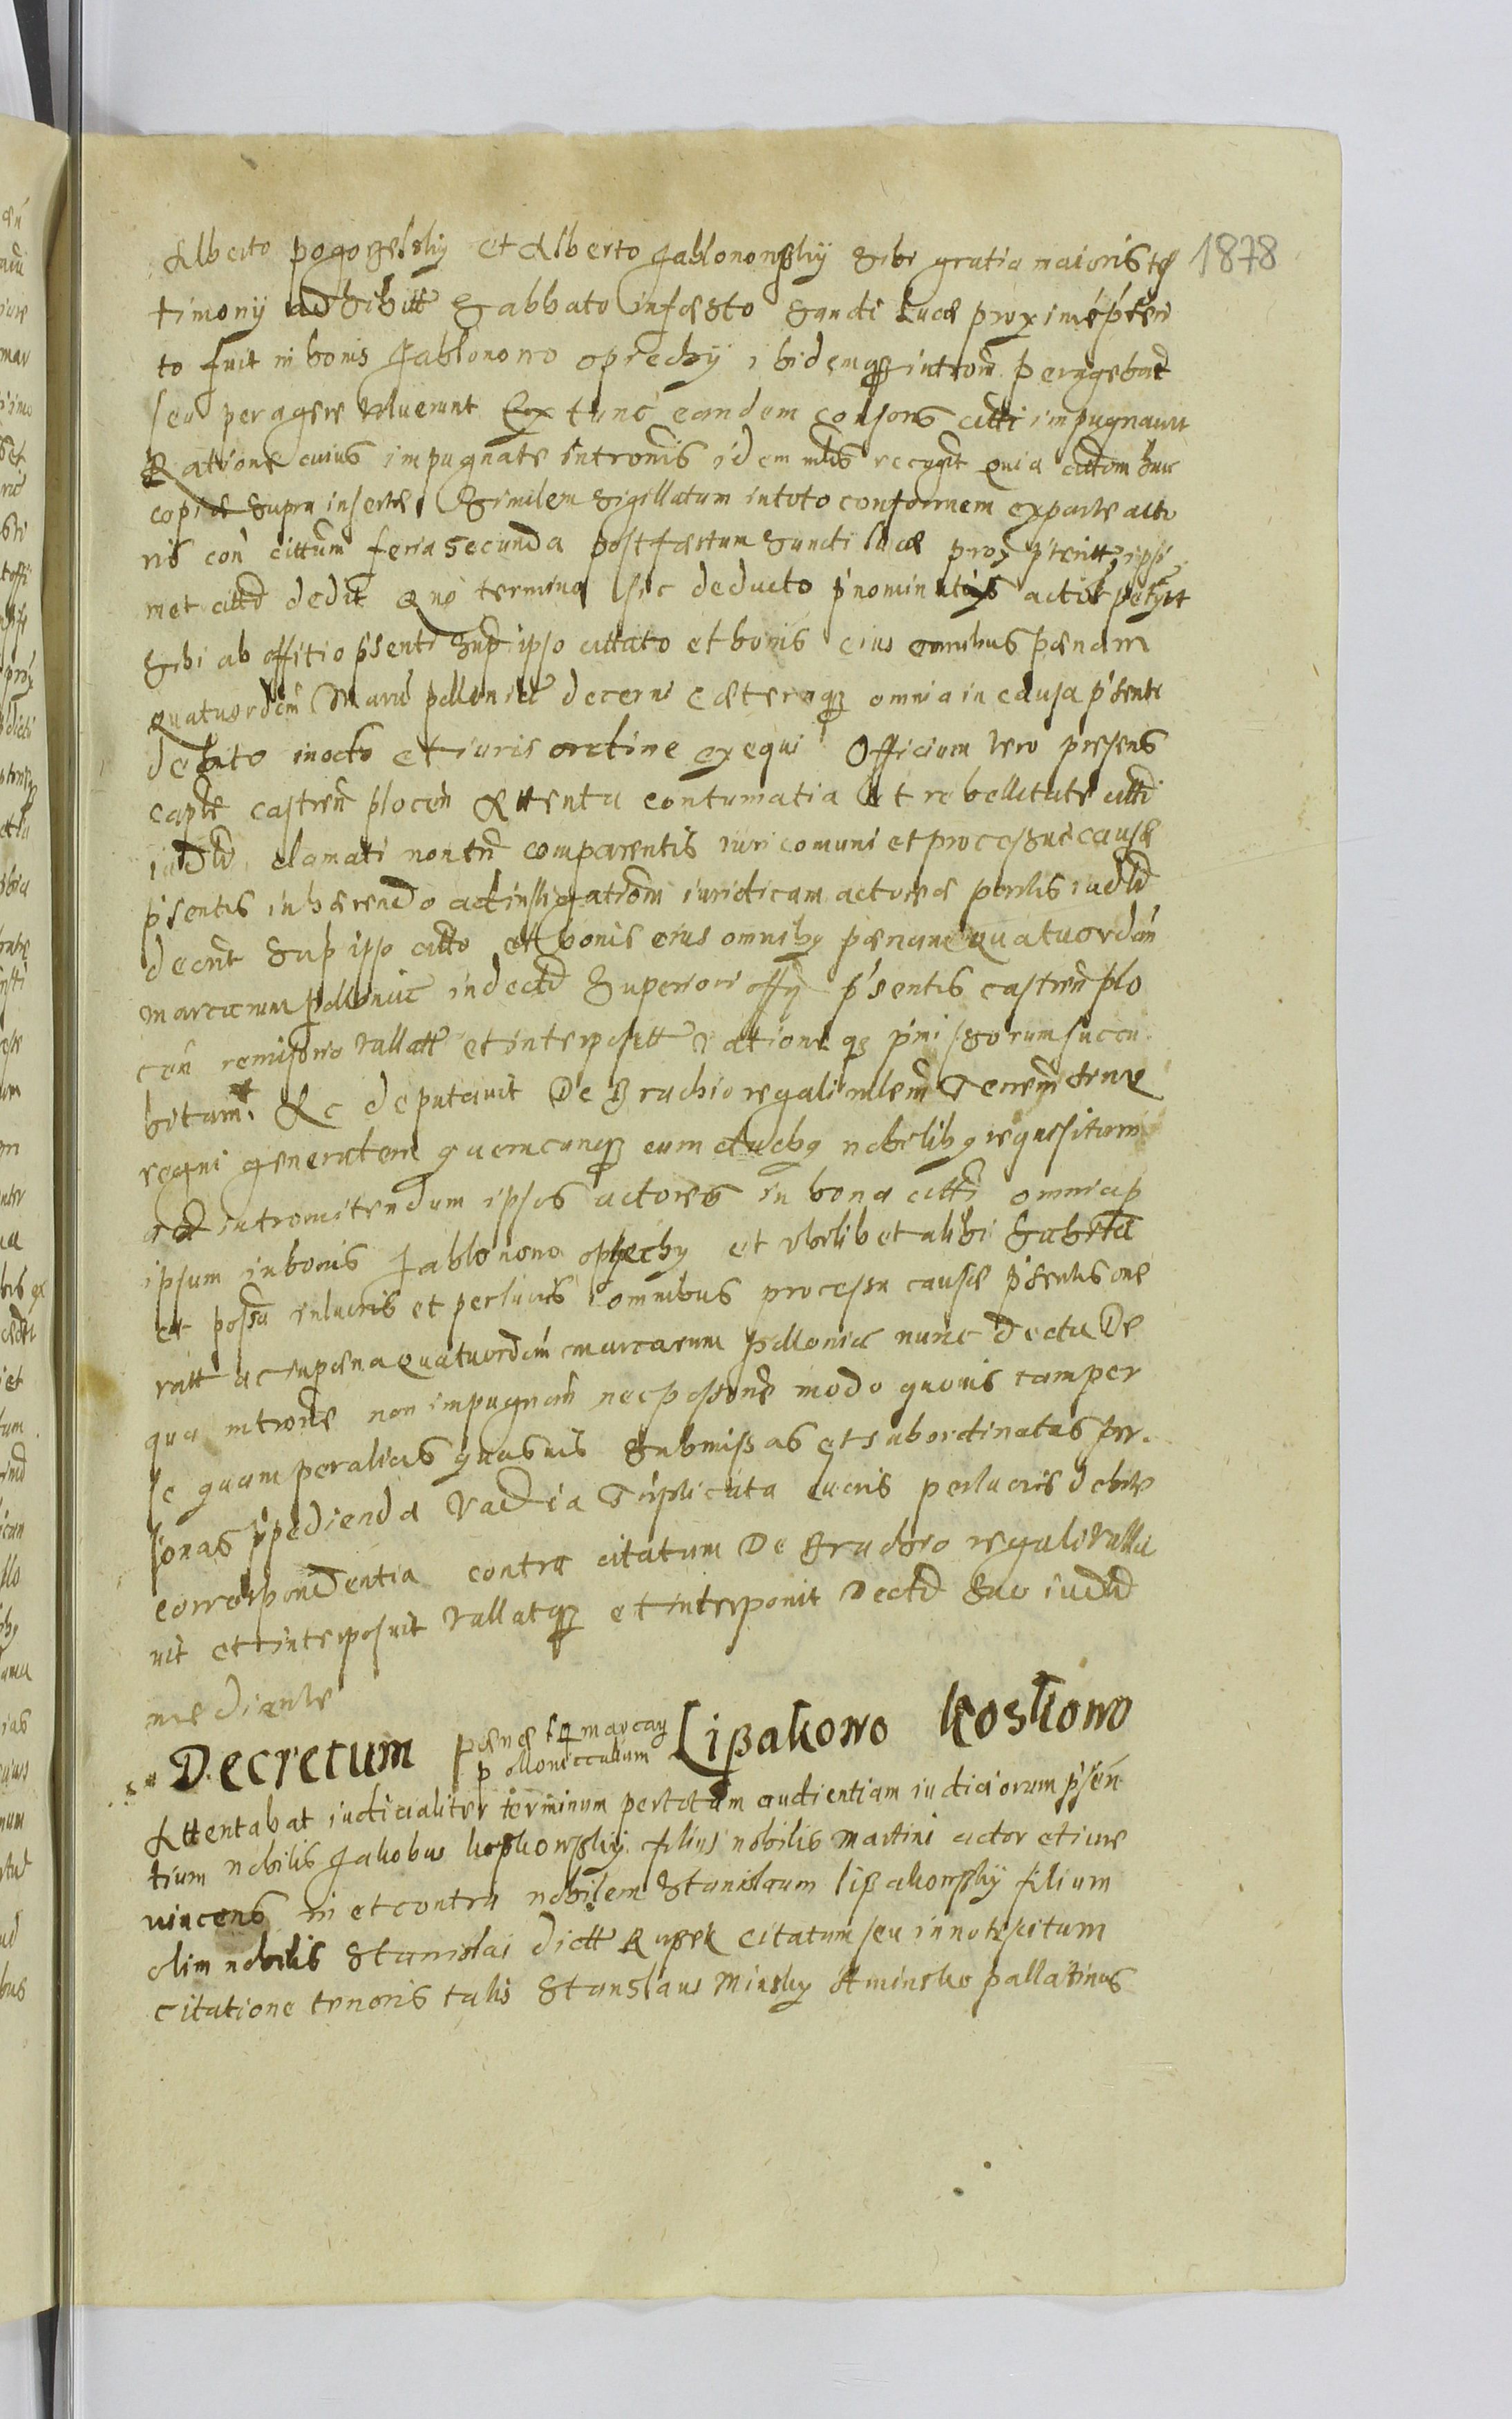 Alberto pogorzelskÿ et Alberto Jablonowskÿ sibi gratia maioris tes 1878
timonÿ adhibitt Sabbato in fæsto Sancti Lucæ proxime pterii
to fuit in bonis Jablonowo opiechÿ ibidemqz introm peragebat
seu peragere voluerunt Ex tunc eandem consors citti impugnavit
Ratione cuius impugnate intromis idem mlis recogt quia cittom huic
copiæ supra insertæ Similem Sigillatum in toto conformem ex parte acto
ris con cittum feria secunda post fæstum Sancti Lucæ prox pteritt ipsi
met citto dedit Quo termino sic deducto pnominatus actor petÿt
Sibi ab offitio psenti Sup ipso cittato et bonis eius omnibus pænam
quatuordecim Marc pollonic decerni cæteraqz omnia in causa psenti
debito modo et iuris ordine exequi Officium vero presens
capte castren plocen Attenta contumatia et rebellitate citti
iudlr clamati non tn comparentis iuri comuni et processui causæ
psentis inhærendo ad instigationem iuridicam actoreæ partis iudlr
decrit Sup ipso citto et bonis eius omnibz pænam quatuordecim
marcarum pollonic in decto Superiori offÿ psentis castren plo
cen remissorio vallatt et interpositt ratione qz pmissorum succu
bitam. Ac deputavit De Brachio regali mlem Terrem sive
regni generalem quemcunqz cum duobz nobilibz requisitum
ad intromitendum ipsos actores in bona citti omnia p
ipsum in bonis Jablonowo opiechy et ubilibet alibi habita
et possa in lucris et perlucris omnibus processu causæ psentis one
ratt ac in pæna quatuordecim marcarum pollonic nunc decta De
qua introne non impugnan nec possone modo quovis tam per
se quam per alias quasvis Submissas et subordinatas per
sonas ppedienda Vadia Triplicata lucris perlucris debite
correspondentia contra citatum De Brachio regali valla
vit et interposuit vallatqz et interponit Decto Suo iudlr
mediante
Decretum pænæ 14 marcaz pollonicalium Lißakowo Koskowo
Attentabat iudicialiter terminum per totam audientiam iudiciorum psen
tium nobilis Jakobus koskowskÿ filius nobilis Martini actor et iure
vincens in et contra nobilem Stanislaum lißakowskÿ filium
olim nobilis Stanislai dictt Rupek citatum seu innotescitum
citatione tenoris talis Stanslaus Minsky A minsko pallatinus